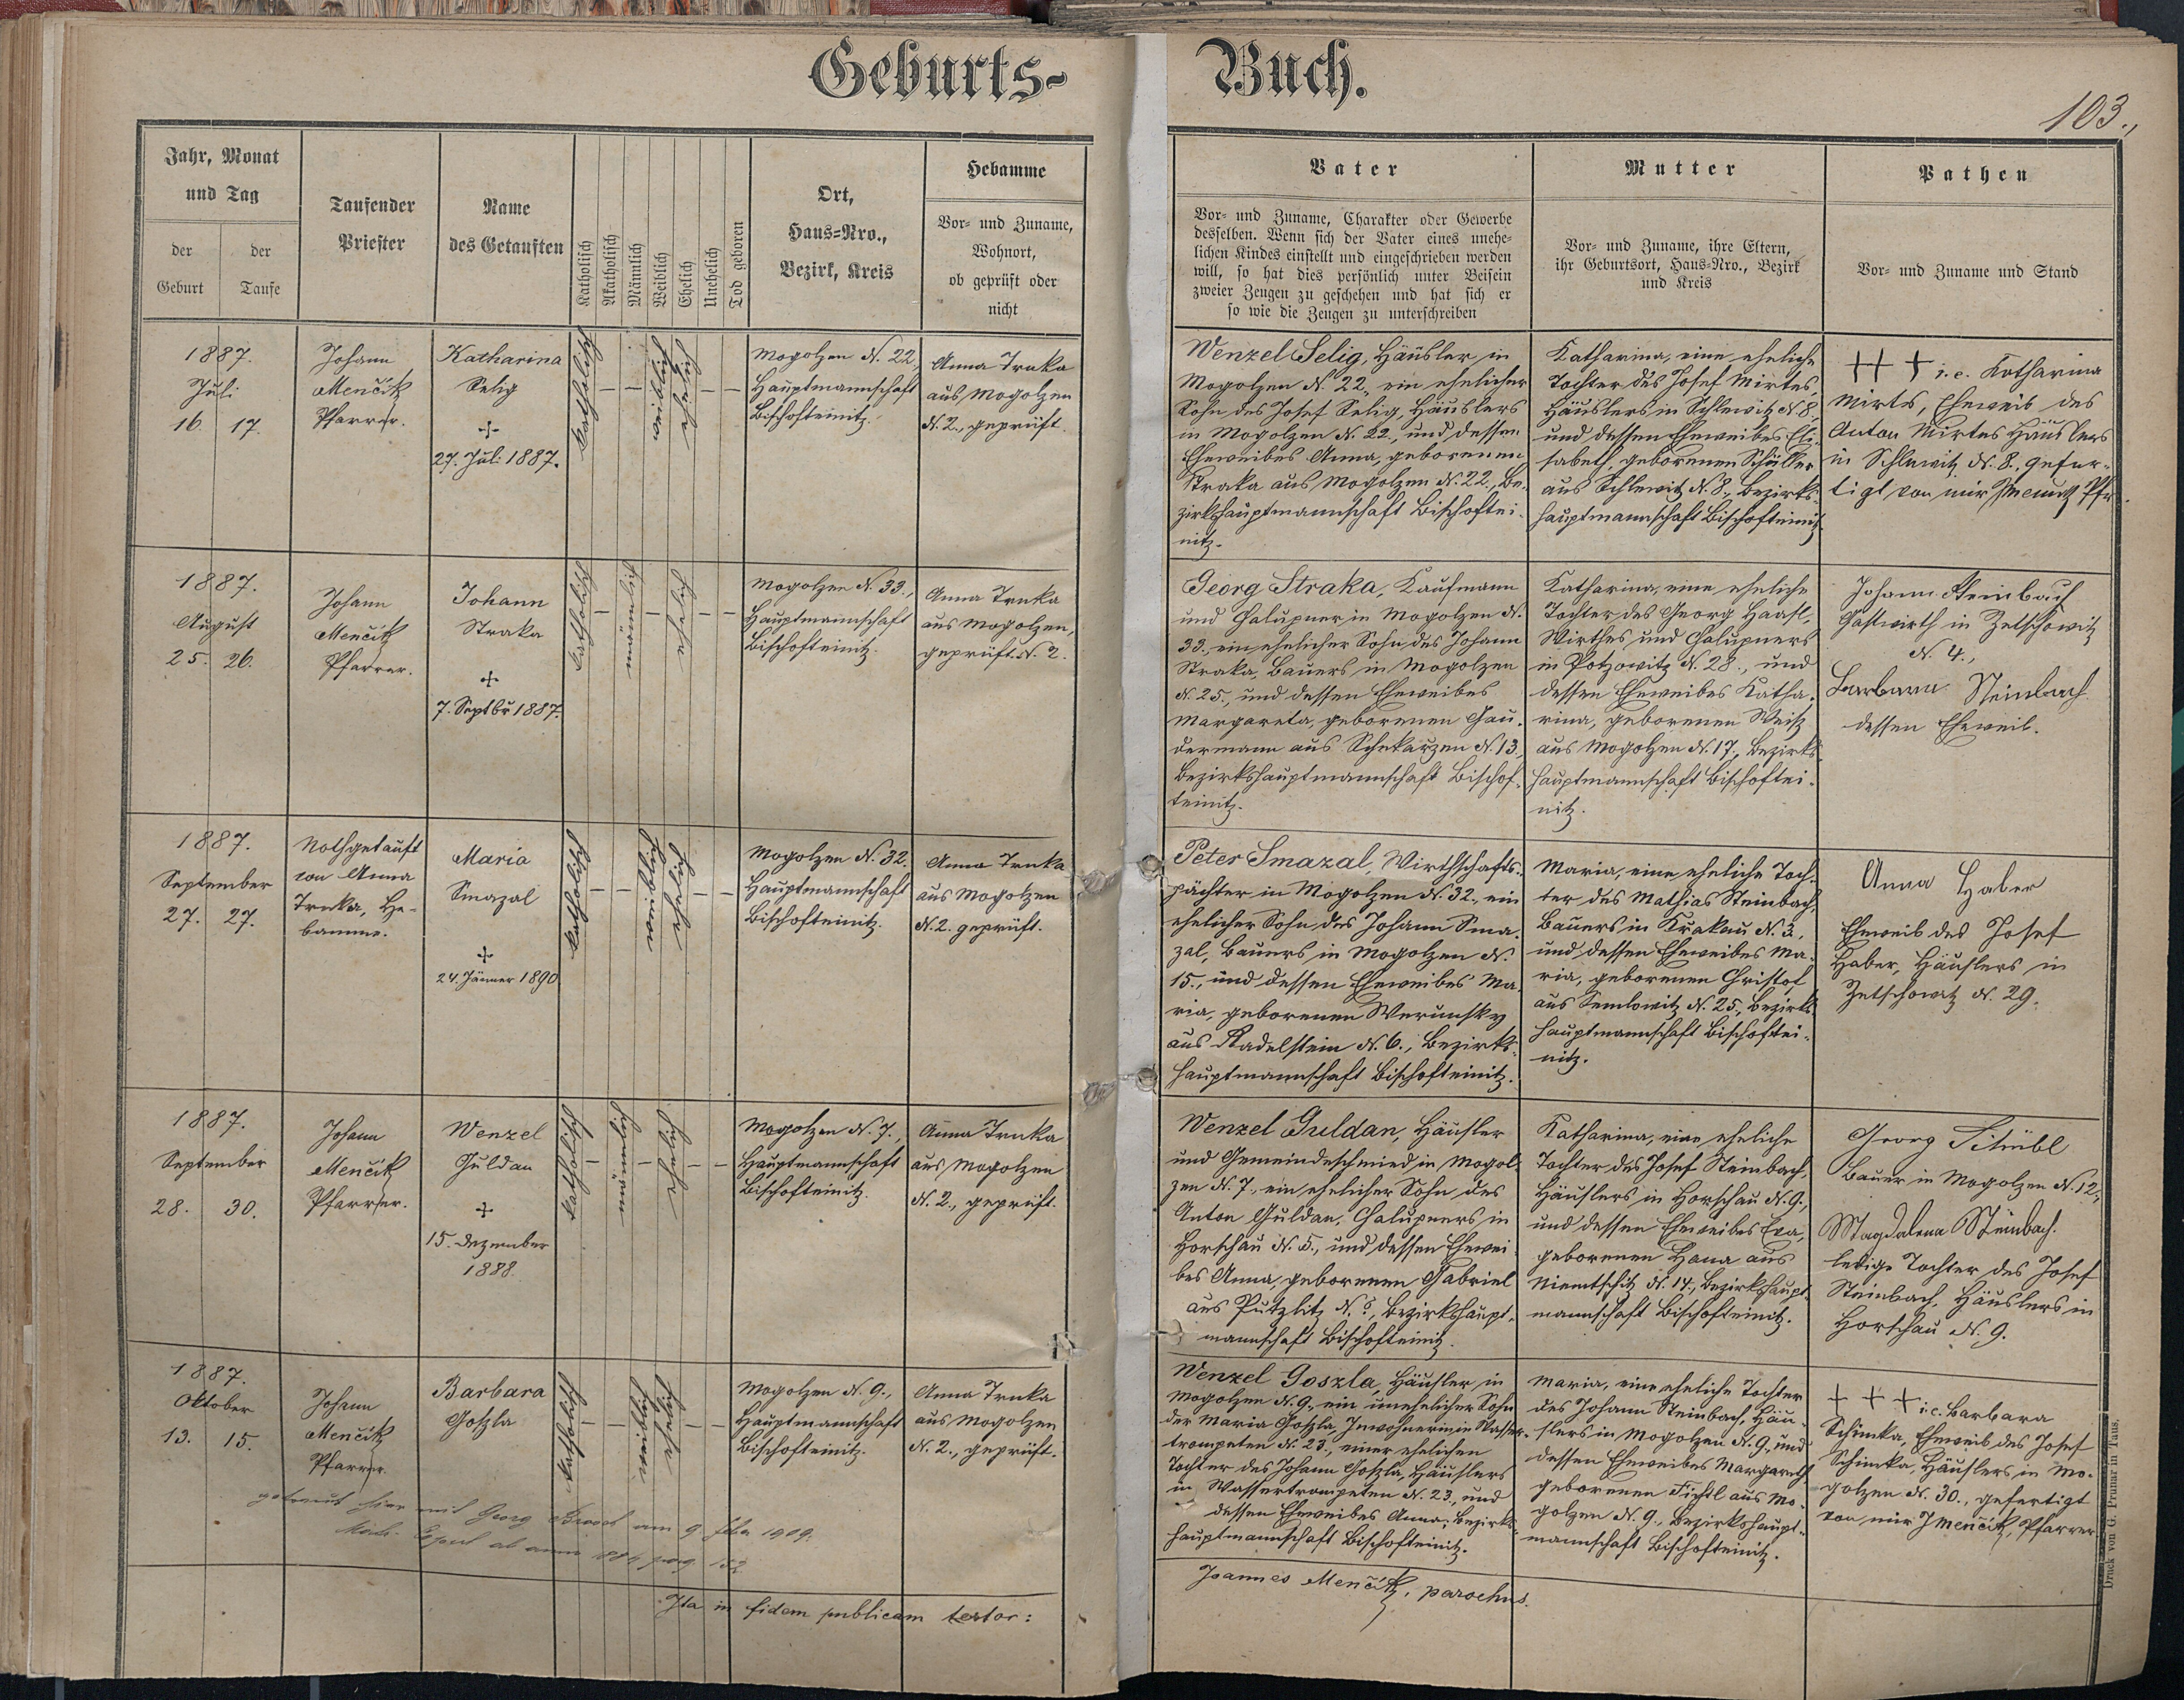 Geburts-
Buch.
103.
Jahr, Monat
und Tag
der
Geburt
der
Taufe
Taufender
Priester
Name
des Getauften
Katholisch
Akatholisch
Männlich
Weiblich
Ehelich
Unehelich
Tod geboren
Ort,
Haus-Nro.,
Bezirk, Kreis
Hebamme
Vor- und Zuname,
Wohnort,
ob geprüft oder
nicht
Vater
Vor- und Zuname, Charakter oder Gewerbe
desselben. Wenn sich der Vater eines unehe-
lichen Kindes einstellt und eingeschrieben werden
will, so hat dies persönlich unter Beisein
zweier Zeugen zu geschehen und hat sich er
so wie die Zeugen zu unterschreiben
Mutter
Vor- und Zuname, ihre Eltern,
ihr Geburtsort, Haus-Nro., Bezirk
und Kreis
Pathen
Vor- und Zuname und Stand
1887.
Juli
16. 17.
Johann
Menčik
Pfarrer.
Katharina
Selig
+
27. Juli 1887.
katholisch
–
–
weiblich
ehelich
–
–
Mogolzen N. 22,
Hauptmannschaft
Bischofteinitz.
Anna Truka
aus Mogolzen
N. 2., geprüft.
Wenzel Selig, Häusler in
Mogolzen N. 22, ein ehelicher
Sohn des Josef Selig, Häuslers
in Mogolzen N. 22., und dessen
Eheweibes Anna, geborenen
Straka aus Mogolzen N. 22, Be-
zirkshauptmannschaft Bischoftei-
nitz.
Katharina, eine eheliche
Tochter des Josef Mirtes,
Häuslers in Schlewitz N. 8.,
und dessen Eheweibes Eli-
sabeth, geborenen Schüller
aus Schlewitz N. 8., Bezirks-
hauptmannschaft Bischofteinitz.
+++ i.e. Katharina
Mirtes, Eheweib des
Anton Mirtes Häuslers
in Schlewitz N. 8., gefer-
tigt von mir JMenčik Pfr.
1887.
August
25. 26.
Johann
Menčik
Pfarrer.
Johann
Straka
+
7. Septbr 1887.
katholisch
–
männlich
–
ehelich
–
–
Mogolzen N. 33.,
Hauptmannschaft
Bischofteinitz.
Anna Truka
aus Mogolzen,
geprüft. N. 2.
Georg Straka, Kaufmann
und Chalupner in Mogolzen N.
33. ein ehelicher Sohn des Johann
Straka, Bauers in Mogolzen
N. 25., und dessen Eheweibes
Margareta, geborenen Gau-
dermann aus Schekarzen N. 13.,
Bezirkshauptmannschaft Bischof-
teinitz.
Katharina, eine eheliche
Tochter des Georg Haasl,
Wirthes und Chalupners
in Potzowitz N. 28., und
dessen Eheweibes Katha-
rina, geborenen Weiß
aus Mogolzen N. 17., Bezirks-
hauptmannschaft Bischoftei-
nitz.
Johann Steinbach
Gastwirth in Zetschowitz
N. 4.,
Barbara Steinbach
dessen Eheweib.
1887.
September
27. 27.
Nothgetauft
von Anna
Truka, He-
bamme.
Maria
Smazal
+
24. Jänner 1890
katholisch
–
–
weiblich
ehelich
–
–
Mogolzen N. 32.
Hauptmannschaft
Bischofteinitz.
Anna Truka
aus Mogolzen
N. 2. geprüft.
Peter Smazal, Wirthschafts-
pächter in Mogolzen N. 32., ein
ehelicher Sohn des Johann Sma-
zal, Bauers in Mogolzen N.
15., und dessen Eheweibes Ma-
ria, geborenen Werunsky
aus Radelstein N. 6., Bezirks-
hauptmannschaft Bischofteinitz.
Maria, eine eheliche Toch-
ter des Mathias Steinbach,
Bauers in Krakau N. 3.,
und dessen Eheweibes Ma-
ria, geborenen Christof
aus Semlowitz N. 25., Bezirks-
hauptmannschaft Bischoftei-
nitz.
Anna Haber
Eheweib des Josef
Haber, Häuslers in
Zetschowitz N. 29.
1887.
September
28. 30.
Johann
Menčik
Pfarrer.
Wenzel
Guldan
+
15. Dezember
1888.
katholisch
–
männlich
–
ehelich
–
–
Mogolzen N. 7.,
Hauptmannschaft
Bischofteinitz.
Anna Truka
aus Mogolzen
N. 2., geprüft.
Wenzel Guldan, Häusler
und Gemeindeschmied in Mogol-
zen N. 7., ein ehelicher Sohn des
Anton Guldan, Chalupners in
Horschau N. 5., und dessen Ehewei-
bes Anna, geborenen Gabriel
aus Putzlitz N. ?, Bezirkshaupt-
mannschaft Bischofteinitz.
Katharina, eine eheliche
Tochter des Josef Steinbach,
Häuslers in Horschau N. 9.,
und dessen Eheweibes Eva,
geborenen Hana aus
Niemtschitz N. 14., Bezirkshaupt-
mannschaft Bischofteinitz.
Georg Stübl
Bauer in Mogolzen N. 12.,
Magdalena Steinbach.
ledige Tochter des Josef
Steinbach, Häuslers in
Horschau N. 9.
1887.
Oktober
13. 15.
Johann
Menčik
Pfarrer.
Barbara
Goszla
katholisch
–
–
weiblich
ehelich
–
–
Mogolzen N. 9.,
Hauptmannschaft
Bischofteinitz.
Anna Truka
aus Mogolzen
N. 2., geprüft.
Wenzel Goszla, Häusler in
Mogolzen N. 9., ein unehelicher Sohn
der Maria Goszla, Inwohnerin in Wasser-
trompeten N. 23., einer ehelichen
Tochter des Johann Goszla, Häuslers
in Wassertrompeten N. 23., und
dessen Eheweibes Anna, Bezirks-
hauptmannschaft Bischofteinitz.
Maria, eine eheliche Tochter
des Johann Steinbach, Häu-
slers in Mogolzen N. 9., und
dessen Eheweibes Margareth
geborenen Fichtl aus Mo-
golzen N. 9., Bezirkshaupt-
mannschaft Bischofteinitz.
+++ i.e. Barbara
Schimka, Eheweib des Josef
Schimka, Häuslers in Mo-
golzen N. 30., gefertigt
von mir JMenčik, Pfarrer
getraut hier mit Georg am 9. 1909.
pag. 152
Ita in fidem publicam testor:
Joannes Menčik, parochus.
Druck von G. Prunar in Taus.